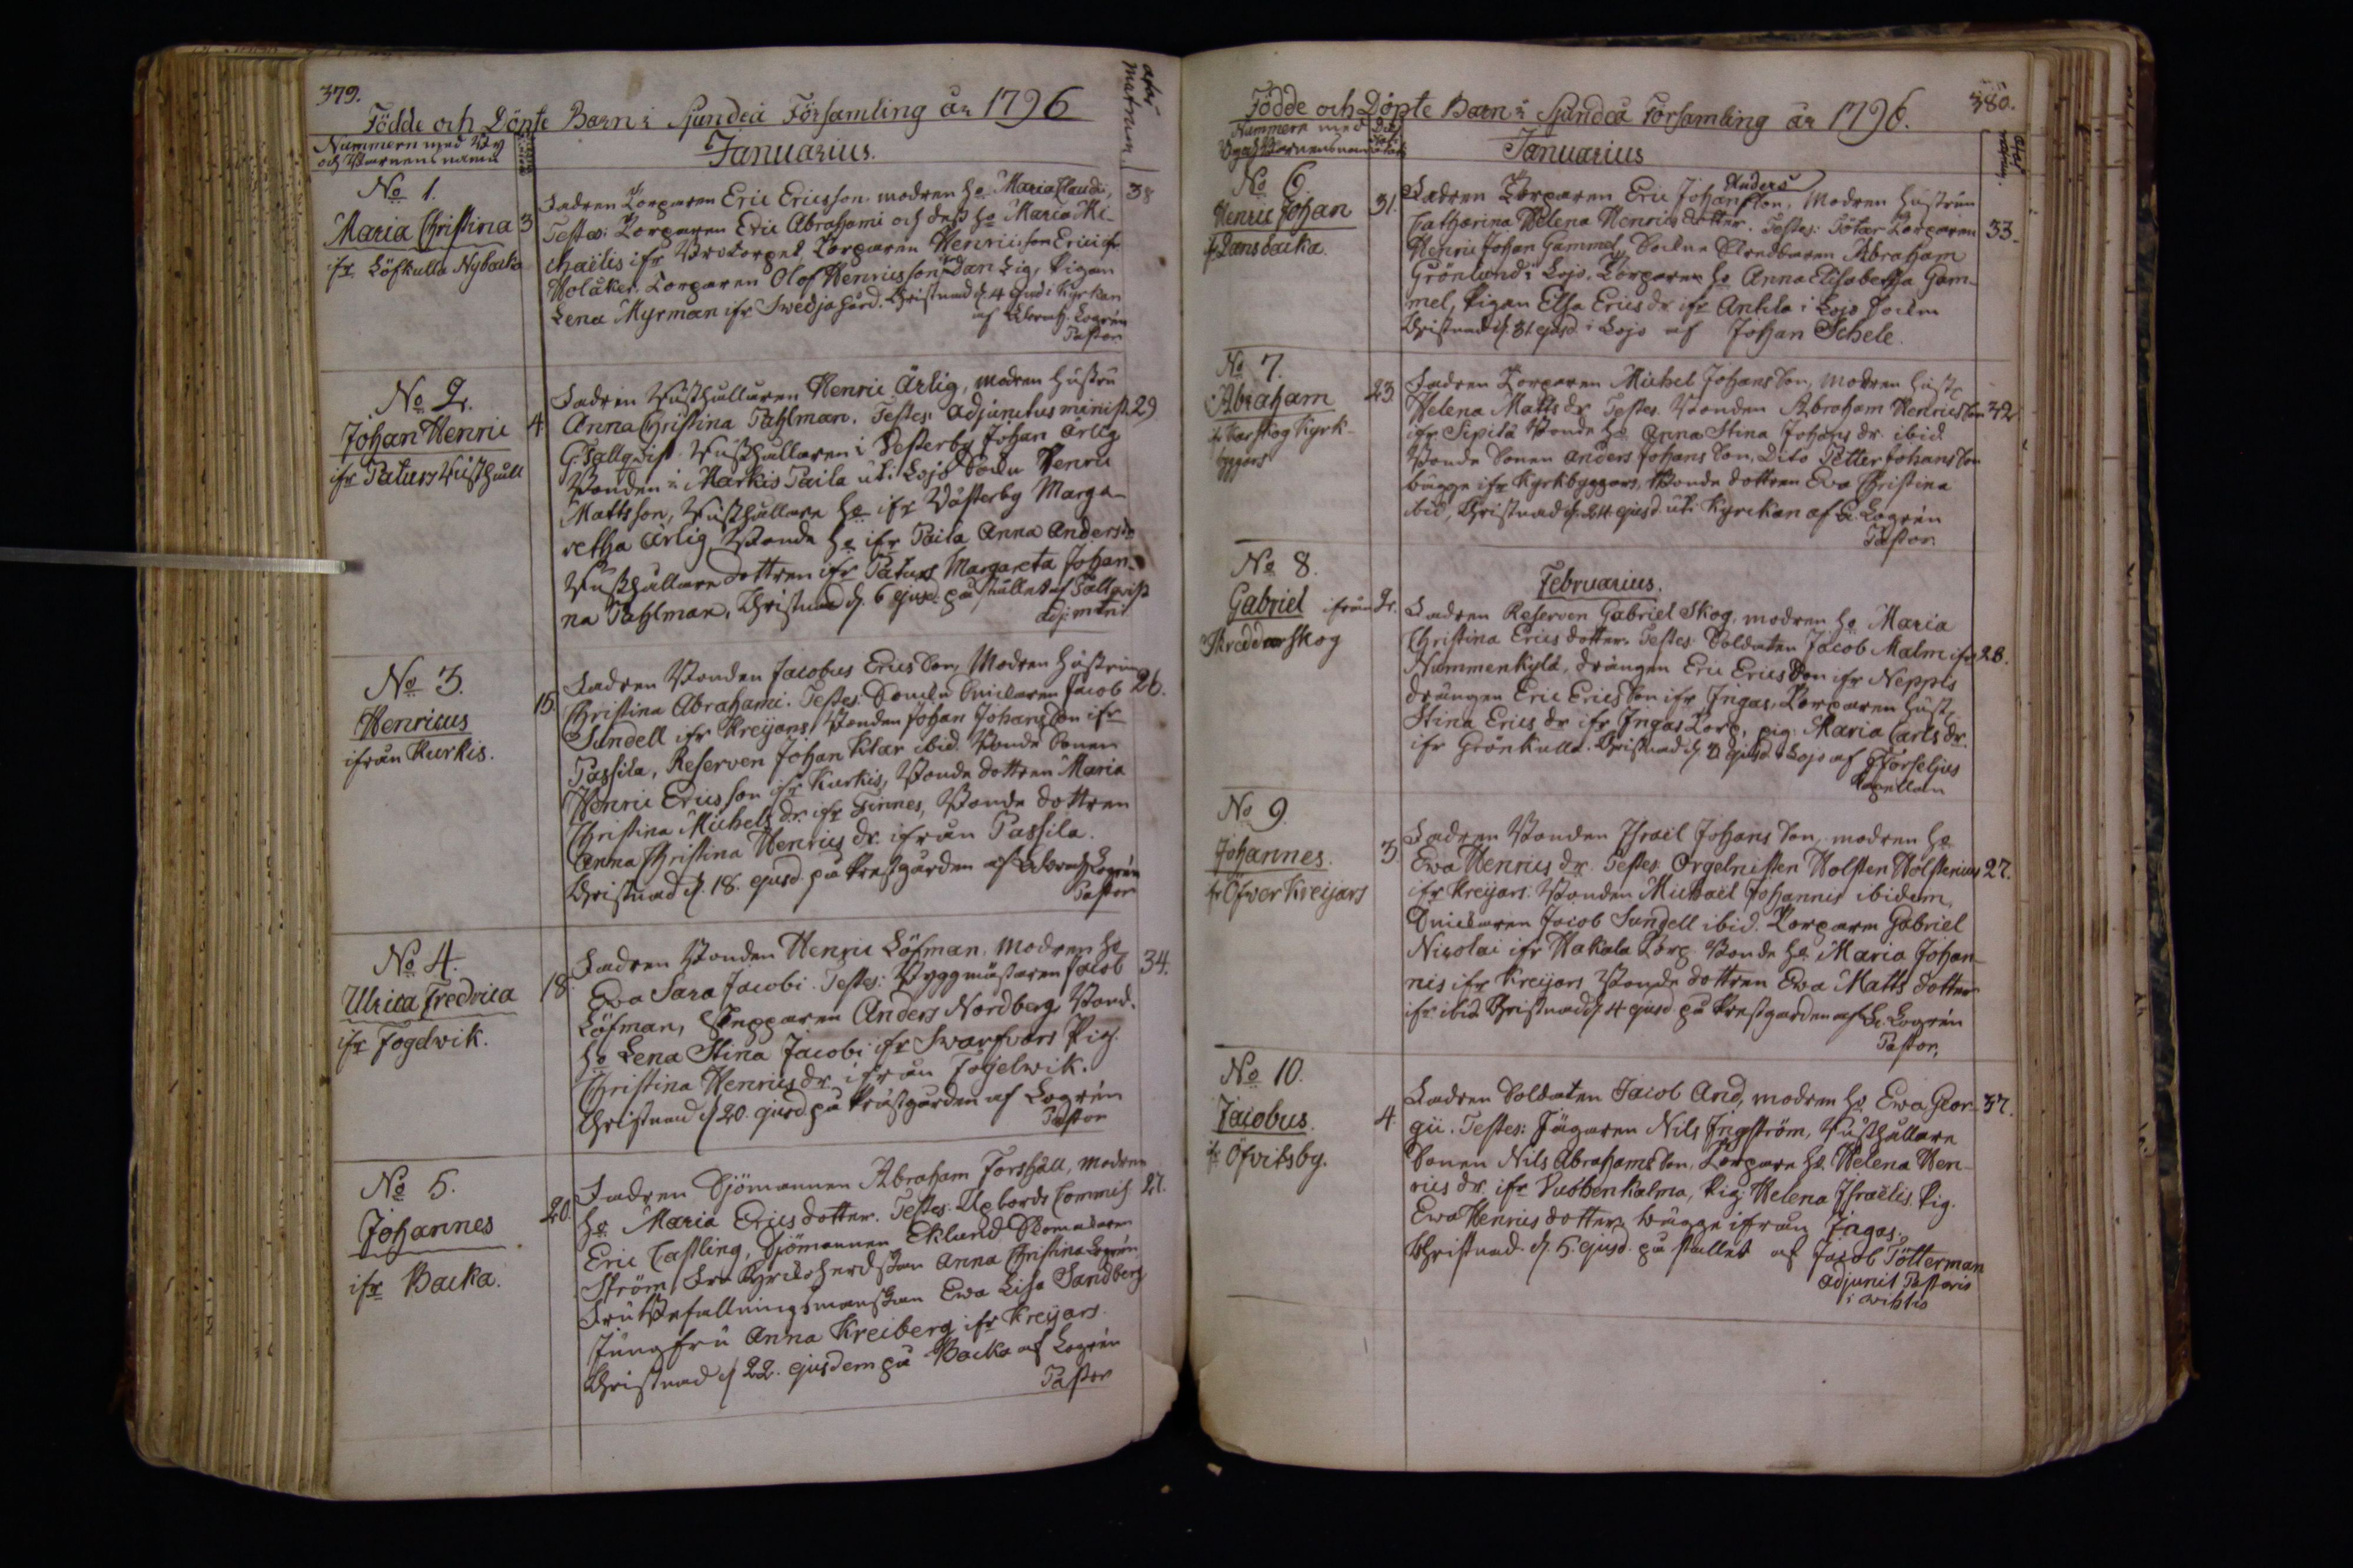 379.
Födde och Döpte Barn i Sjundeå Församling år 1796
ætas
matrum
Nummern med By
och Barnens namn
Januarius.
No 1.
Maria Christina
ifr Löfkulla Nybacka
3
Fadren Torparen Eric Ericsson. modren ho Maria Claudi, 38
Testes: Torparen Eric Abrahami och dess ho Maria Mi-
chaëlis ifr Torpet, Torparen Henricsson Erici ifr
Torparen Olof Henricsson Pigan
Lena Myrman ifr Swedjagård. Christnad d. 4 ejusd i Kyrkan
af Logrén
Pastor
No 2.
Johan Henric
ifr Paturs Rusthåll
4
Fadren Rusthållaren Henric Ärlig, modren Hustru
Anna Christina Pahlman. Testes: Adjunctus minist. 29
G. Fallqvist Rusthållaren i Vesterby Johan Arlig
Bonden i Markis Paila uti Lojo Sockn Henric
Mattsson, Rusthållare ho ifr Västerby Marga-
retha Ärlig, Bonde ho ifr Paila Anna Anders dr
Rusthållare dottren ifr Paturs Margareta Johan-
na Pahlman. Christnad d. 6 ejusd på stället af Fallqvist
adj: mini
No 3.
Henricus
ifrån Kurkis.
15
Fadren Bonden Jacobus Ericsson, Modren Hustrun
Christina Abrahami. Testes: Sockn Snickaren Jacob 26.
Sundell ifr Kreijars, Bonden Johan Johansson ifr
Passila, Reserven Johan Klar ibid. Bonde Sonen
Henric Ericsson ifr Kurkis, Bonde dottren Maria
Christina Michels dr. ifr Finnes, Bonde dottren
Anna Christina Henrics dr. ifrån Passila.
Christnad d. 18. ejusd. på Prestgården af Logrén
Pastor
No 4.
Ulrica Fredrica
ifr Fogelwik.
18
Fadren Bonden Henric Löfman, modren ho
Ewa Sara Jacobi. Testes: Byggmästaren Jacob 34.
Löfman, Anders Nordberg, Bond.
ho Lena Stina Jacobi ifr Swarfvars Pig.
Christina Henrics dr. ifrån Fogelwik.
Christnad d 20. ejusd på Prästgården af Logrén
Pastor
No 5.
Johannes
ifr Backa.
20.
Fadren Sjömannen Abraham Forshäll, modren
ho Maria Ericsdotter. Testes: Commiss 27.
Eric Castling, Sjömannen Eklund
Ström, Fru Kyrkoherdskan Anna Christina Logrén,
Fru Befallningsmanskan Ewa Lisa Sandberg
Jungfru Anna Kreiberg ifr Kreijars.
Christnad d 22. ejusdem på Backa af Logrén
Pastor
380.
Födde och Döpte Barn i Sjundeå Församling år 1796.
Nummern med
Januarius
No 6
Henric Johan
fr Dansbacka.
31.
Fadren Torparen Eric Johansson, Anders Modren Hustrun
Catharina Helena Henricsdotter. Testes: Torparen 33.
Henric Johan Gammel, Sockne Abraham
Grönlund i Lojo, Torparen ho Anna Elisabetha Gam-
mel, Pigan Elsa Erics dr ifr Anttila i Lojo Sockn
Christnad d. 31 ejusd. i Lojo af Johan Schele.
No 7.
Abraham
fr Karskog Kyrk-
byggars
23.
Fadren Torparen Michel Johansson, modren Hust.
Helena Matts dr. Testes. Bonden Abraham Henricsson 42.
ifr Sipilä Bonde ho Anna Stina Johans dr. ibid
Bonde Sonen Anders Johansson, Dito Petter Johansson
bägge ifr Kyrkbyggars, Bonde dottren Ewa Christina
ibid, Christnad d. 24 ejusd. uti Kyrckan af Logrén
Pastor.
Februarius.
No 8.
Gabriel ifrån
Skreddarskog
2.
Fadren Reserven Gabriel Skog, modren ho Maria
Christina Ericsdotter. Testes: Soldaten Jacob Malm ifr 28.
Nummenkylä, drängen Eric Ericsson ifr Neppis
drängen Eric Ericsson ifr Ingas, Torparen Hust.
Stina Erics dr ifr Ingas Torp, pig. Maria Carls dr.
ifr Grönkulla. Christnad d 3 ejusd i Lojo af Forselius
Kapellan
No 9.
Johannes.
fr Öfver Kreijars
3.
Fadren Bonden Israel Johansson, modren ho
Ewa Henrics dr. Testes: Orgelnisten Holsten Holstenius 27.
ifr Kreijars. Bonden Michaël Johannis ibidem,
Snickaren Jacob Sundell ibid. Torparen Gabriel
Nicolai ifr Hakala Torp. Bonde ho Maria Johan-
nis ifr Kreijars Bonde dottren Ewa Matts dotter
ifr ibid Christnad d 4 ejusd. på Prestgården af Logrén
Pastor.
No 10.
Jacobus.
fr Öfvitsby.
4.
Fadren Soldaten Jacob And, modren ho Ewa Geor- 37.
gii. Testes: Jägaren Nils Ingström, Rusthållare
Sonen Nils Abrahamsson, Torpare ho Helena Hen-
rics dr. ifr Pig: Helena Israëlis Pig.
Ewa Henricsdotter bägge ifrån Ingas.
Christnad. d. 5. ejusd. på stället af Jacob Tötterman
adjunct Pastoris
i Wihtis